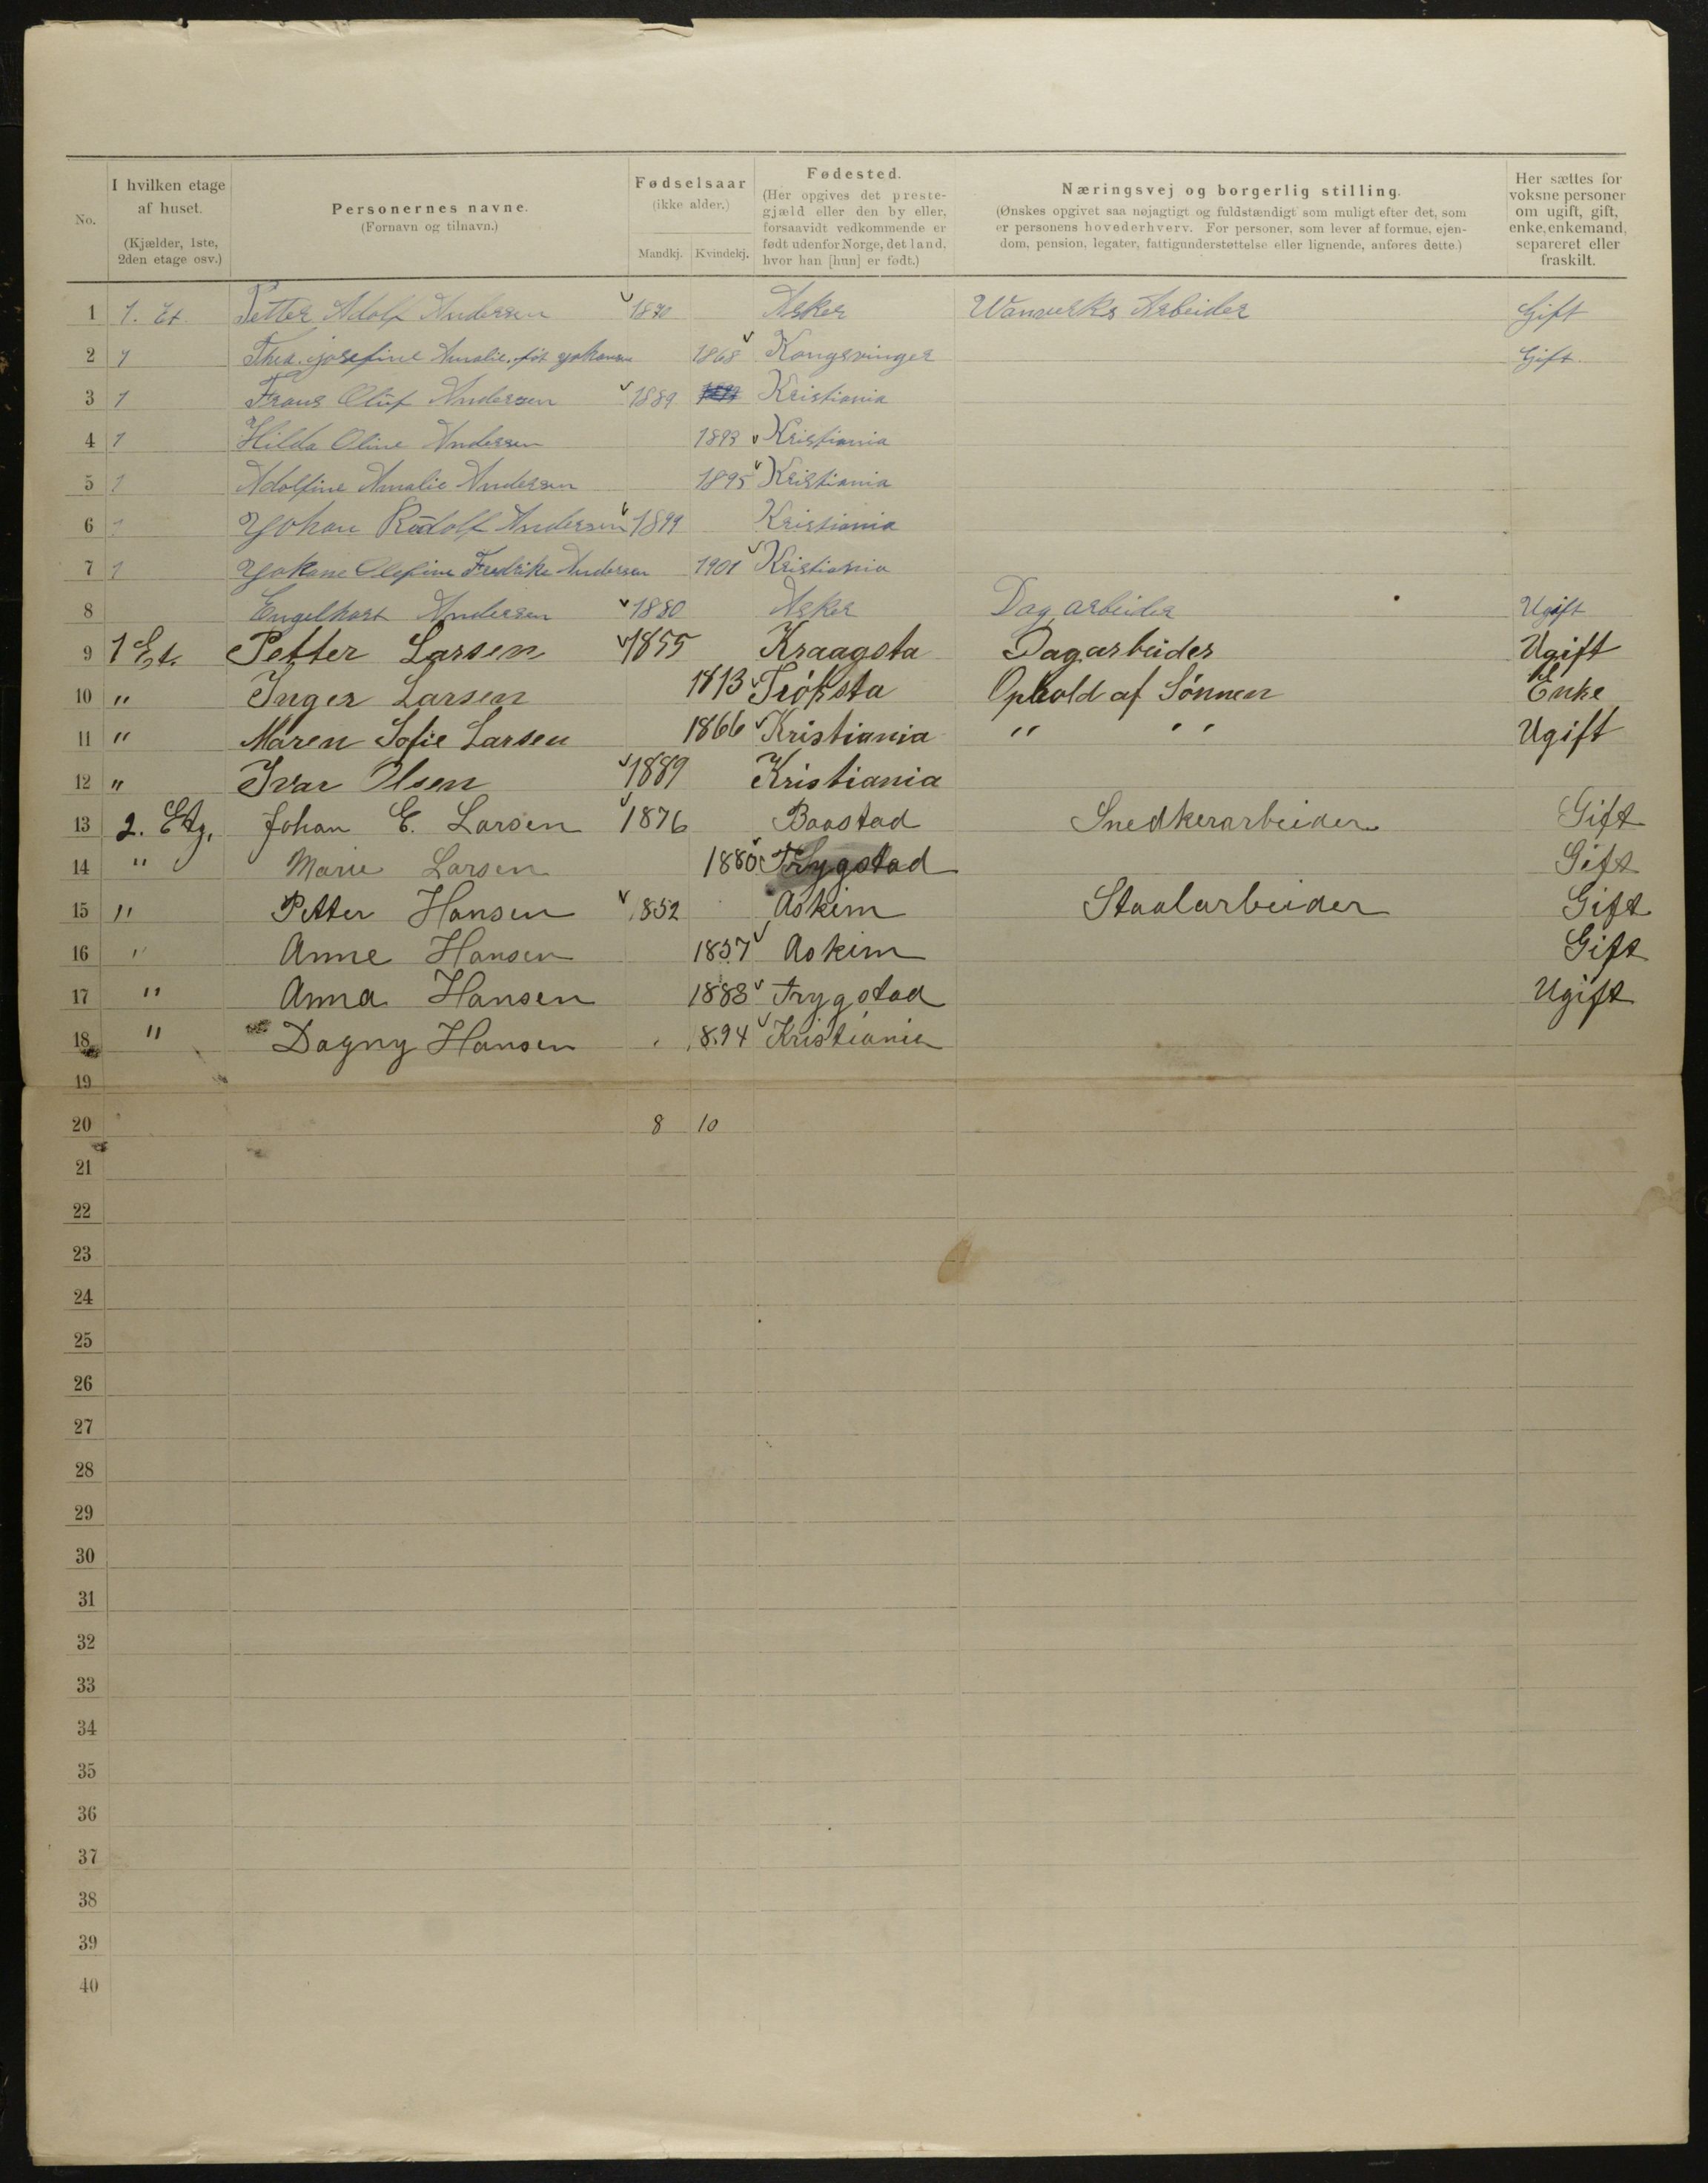 No.
I hvilken etage af huset. (Kjælder, 1ste, 2den etage osv.)
Personernes navne. (Fornavn og tilnavn.)
Fødselsaar (ikke alder.) Mandkj. Kvindekj.
Fødested. (Her opgives det prestegjæld eller den by eller, forsaavidt vedkommende er født udenfor Norge, det land, hvor han [hun] er født.)
Næringsvej og borgerlig stilling. (Ønskes opgivet saa nøjagtigt og fuldstændigt som muligt efter det, som er personens hovederhverv. For personer, som lever af formue, ejendom, pension, legater, fattigunderstøttelse eller lignende, anføres dette.)
Her sættes for voksne personer om ugift, gift, enke, enkemand, separeret eller fraskilt.
1 1. Et. Petter Adolf Andersen 1870 Asker Arbeider Gift
2 1 Josefine Amalie. født 1868 Kongsvinger Gift.
3 1 Frans Oluf Andersen 1889 Kristiania
4 1 Hilda Oline Andersen 1893 Kristiania
5 1 Adolfine Amalie Andersen 1895 Kristiania
6 1 Yohan Rudolf Andersen 1899 Kristiania
7 1 Yohane Olefine Fredrike Andersen 1901 Kristiania
8 Engelhart Andersen 1880 Asker Dag arbeider Ugift
9 1 Et. Petter Larsen 1855 Kraagsta Dagarbeider Ugift
10 " Inger Larsen 1813 Trøksta Ophold af Sønnen Enke
11 " Maren Sofie Larsen 1866 Kristiania " " Ugift
12 " Ivar Olsen 1889 Kristiania
13 2. Etg. Johan E. Larsen 1876 Baastad Snedkerarbeider Gift
14 " Marie Larsen 1880 Trygstad Gift
15 " Petter Hansen 1852 Askim Staalarbeider Gift
16 " Anne Hansen 1857 Askim Gift
17 " Anna Hansen 1883 Trygstad Ugift
18 " Dagny Hansen 1894 Kristiania
19
20 8 10
21
22
23
24
25
26
27
28
29
30
31
32
33
34
35
36
37
38
39
40